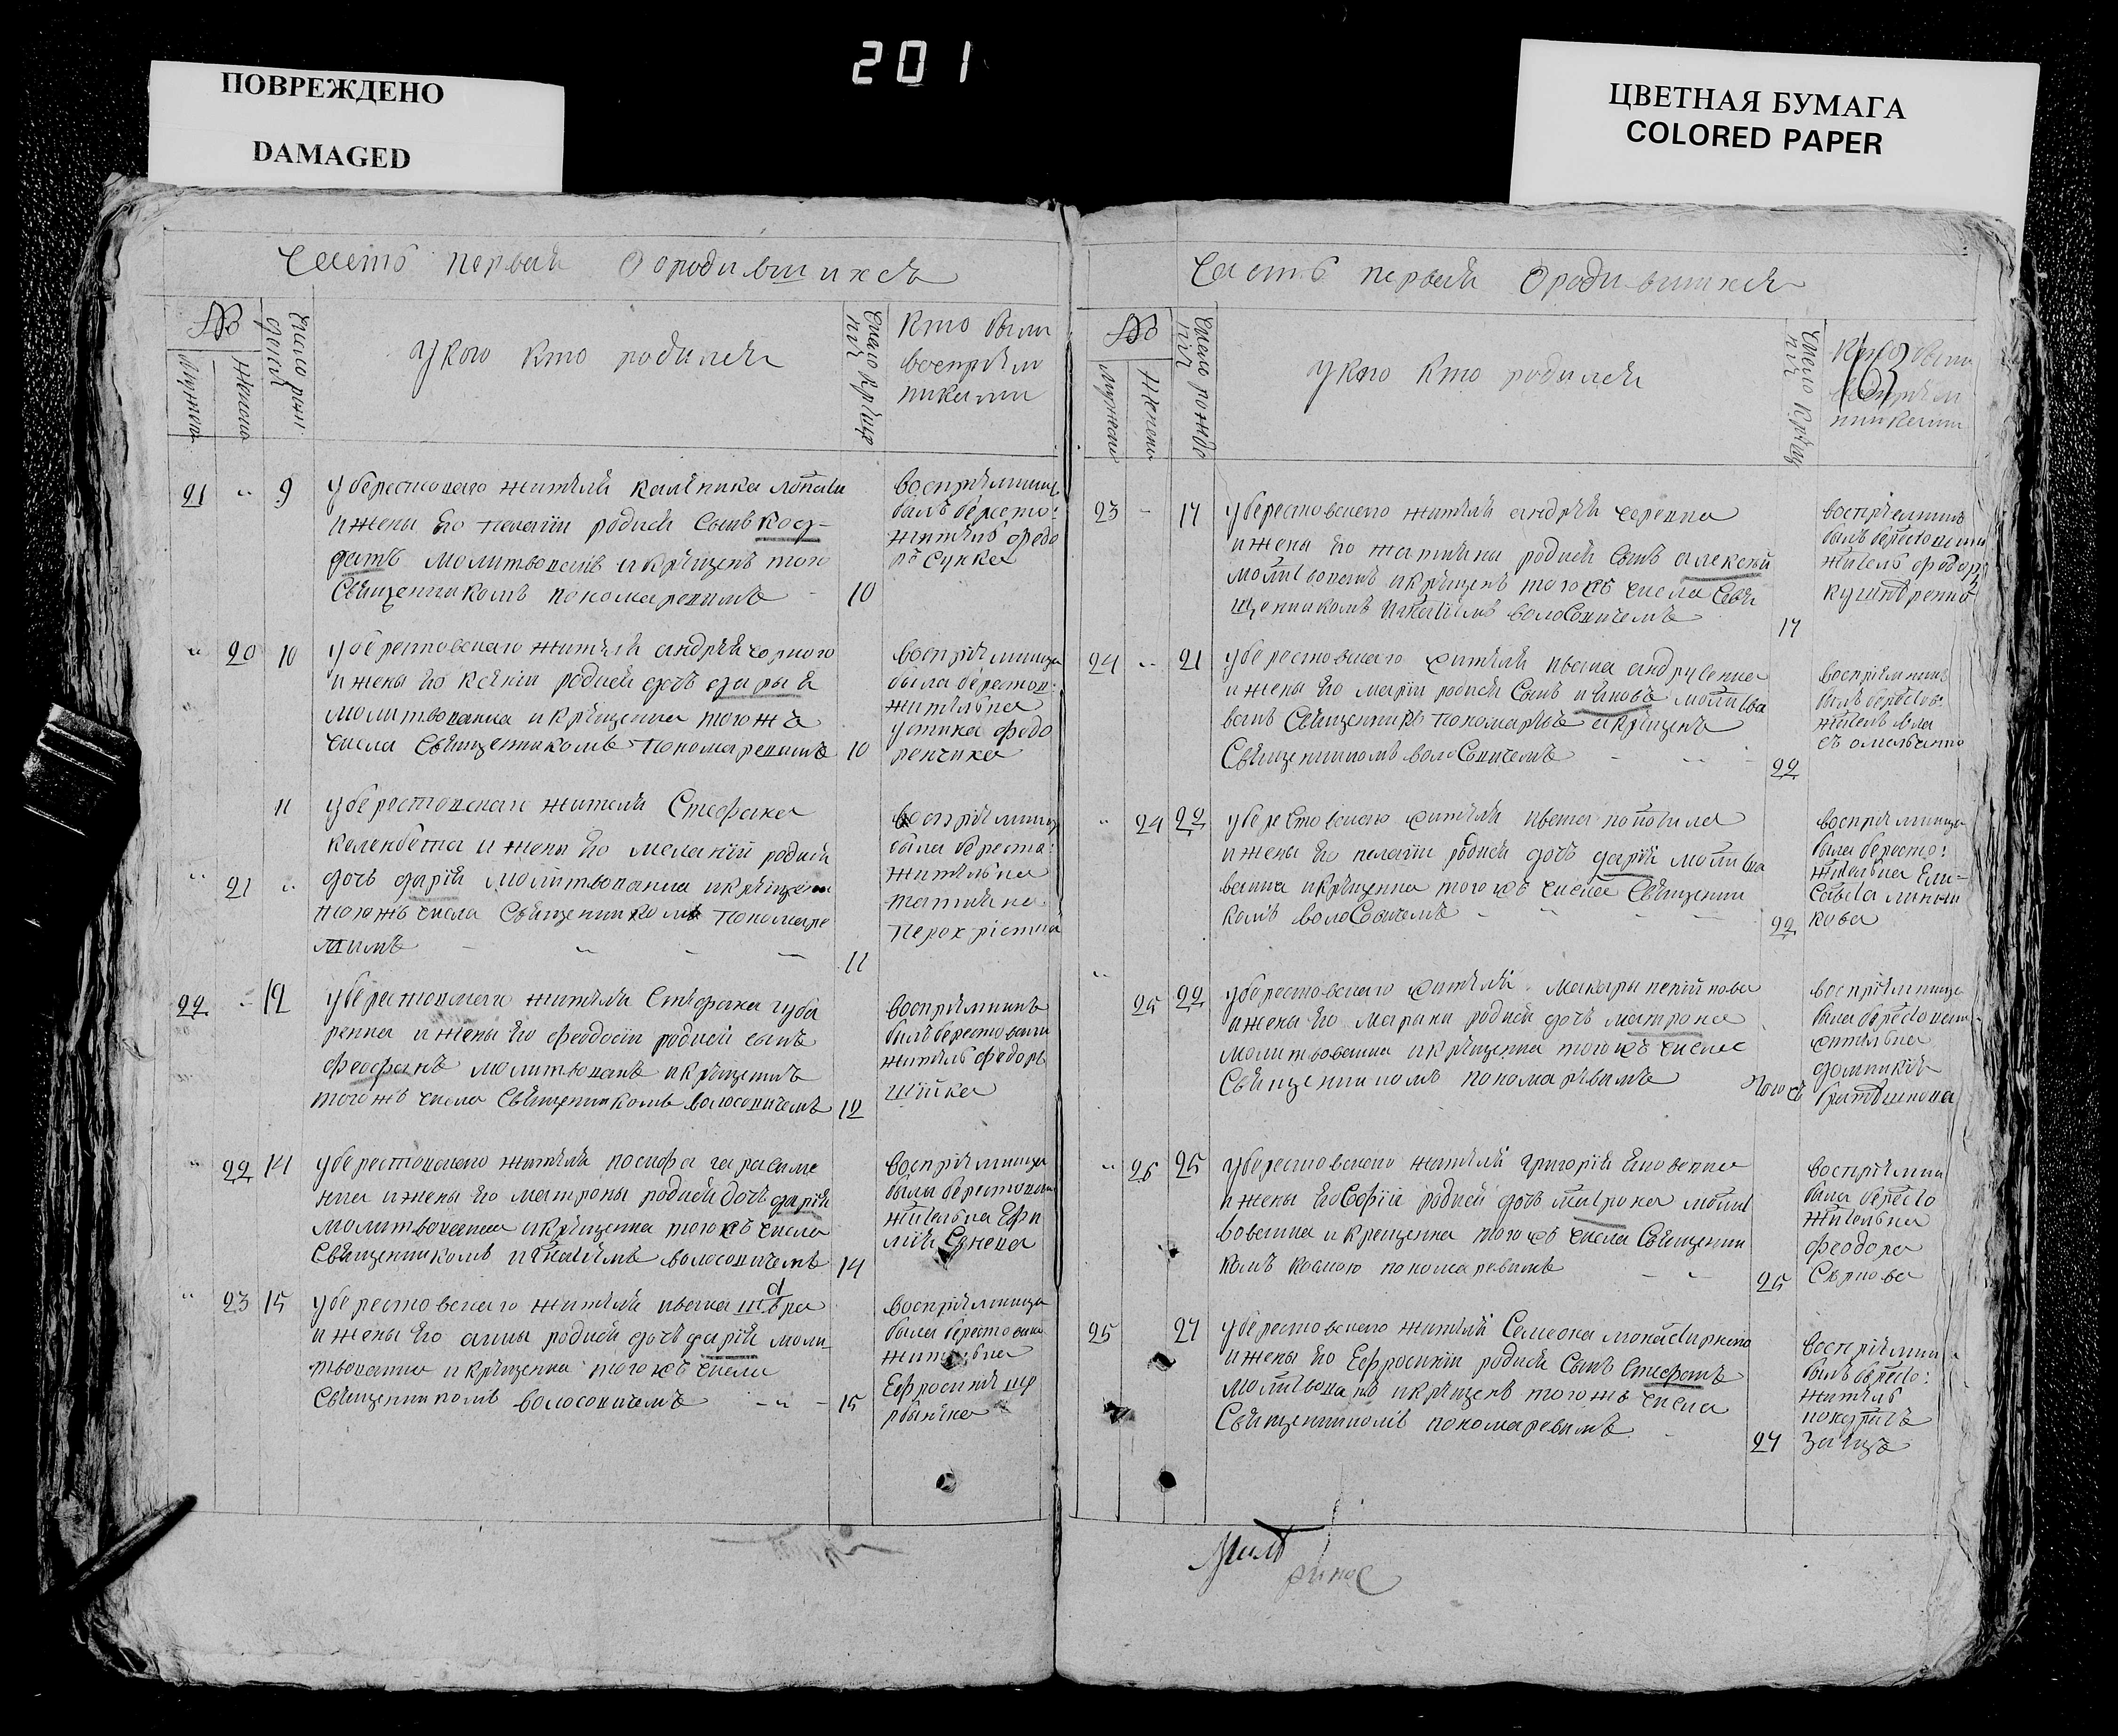 201
ПОВРЕЖДЕНО
DAMAGED
ЦВЕТНАЯ БУМАГА
COLORED PAPER
Часть первая О родившихся
№
Мужеска
Женска
Число рож
дения
У кого кто родился
Число крещ
Кто были
воспріем
никами
21 " 9
У берестовского жителя калѣника
и жены его пелагіи родися сынъ код-
ратъ молитвованъ и крѣщенъ того
Свѣщенникомъ пономаревимъ 10
воспріемник
билъ бересто:
житель федо
ръ сулка
" 20 10
У берестовского жителя андрѣя чорного
и жены его ксѣніи родися дочь дарья
молитвованна и крѣщенна того жъ
числа Свѣщенникомъ пономаревимъ 10
воспріемница
была берестов:
жителька
устина федо
ренчика
" 21 11
У берестовского жителя Стефана
калембета и жены его меланіи родися
дочь дарія молитвованна и крѣщенна
того жъ числа Свѣщенникомъ пономаре
вимъ 11
воспріемница
была бересто:
жителька
татіяна
перехрістна
22 " 12
У берестовского жителя Стефана губа
ренка и жены его феодосіи родися сынъ
феофанъ молитвованъ и крѣщенъ
того жъ числа Свѣщенникомъ волосовичемъ 12
воспріемникъ
билъ берестовски
житель федоръ
шійка
" 22 14
У берестовского жителя иосифа гарасиме
нка и жены его матроны родися дочь дарія
молитвованна и крѣщенна того жъ числа
Свѣщенникомъ игнатіемъ волосовичемъ 14
воспріемница
была берестовска
жителька Ефи
мія
" 23 15
У берестовского жителя ивана
и жены его анны родися дочь дарія моли
твованна и крѣщенна того жъ числа
Свѣщенникомъ волосовичемъ 15
воспріемница
была берестовска
жителька
Ефросинія
Часть первая О родившихся
№
Мужеска
Женска
Число рожде
нія
У кого кто родился
Число крещ
нія
Кто были
воспріем
никами
163
23 - 17
У берестовского жителя андрѣя черепка
и жены его татіяны родися сынъ алексѣй
молитвованъ и крѣщенъ того жъ числа Свѣ
щенникомъ игнатіемъ волосовичемъ 17
воспріемникъ
билъ берестовски
житель федоръ
кушнѣренко
24 " 21
У берестовского жителя ивана андрусенка
и жены его маріи родися сынъ молитво
ванъ Свѣщенникомъ пономаревимъ и крѣщенъ
Свѣщенникомъ волосовичемъ 22
воспріемникъ
билъ берестов:
житель вла
съ омелченко
" 24 22
У берестовского жителя ивана
и жены его пелагіи родися дочь дарія молитво
ванна и крѣщенна того жъ числа Свѣщенни
комъ волосовичемъ 22
воспріемница
была бересто:
жителька Ели-
савета
кова
" 25 22
У берестовского жителя макара
и жены его марины родися дочь матрона
молитвованна и крѣщенна того жъ числа
Свѣщенникомъ пономаревимъ того жъ
воспріемница
была берестовска
жителька
домникія
" 26 25
У берестовского жителя григорія
и жены его Софіи родися дочь матрона молит
вованна и крещенна того жъ числа Свѣщенни
комъ космою пономаревимъ 25
воспріемни
была бересто
жителька
феодора
25 27
У берестовского жителя Семеона монастирного
и жены его Ефросиніи родися сынъ Стефанъ
молитвованъ и крѣщенъ того жъ числа
Свѣщенникомъ пономаревимъ 27
воспріемни
билъ бересто:
житель
кондратъ
заецъ